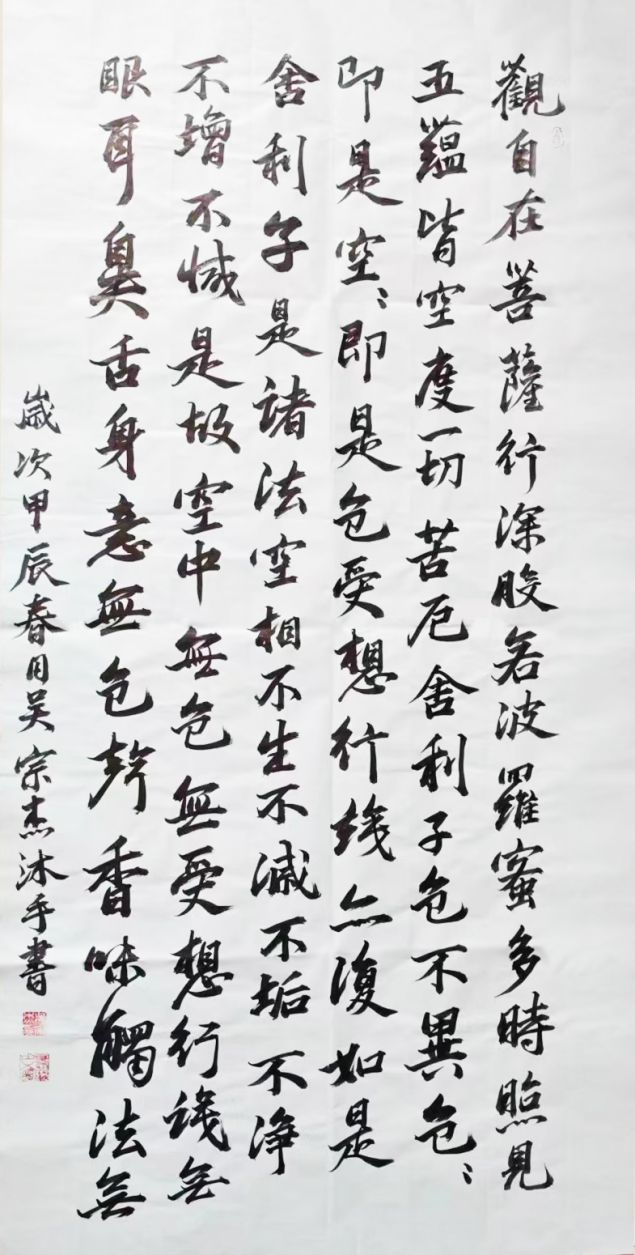 觀自在菩薩行深般若波羅蜜多時照見
五蘊皆空度一切苦厄舍利子色不異色〻
即是空〻即是色受想行識亦復如是
舍利子是諸法空相不生不滅不垢不淨
不增不減是故空中無色無受想行識無
眼耳鼻舌身意無色聲香味觸法無
歲次甲辰春月吳宗杰沐手書